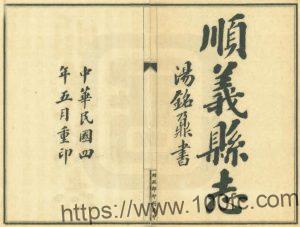 順義縣志
湯銘鼐書
中華民國四
年五月重印
https://www.100fc.com